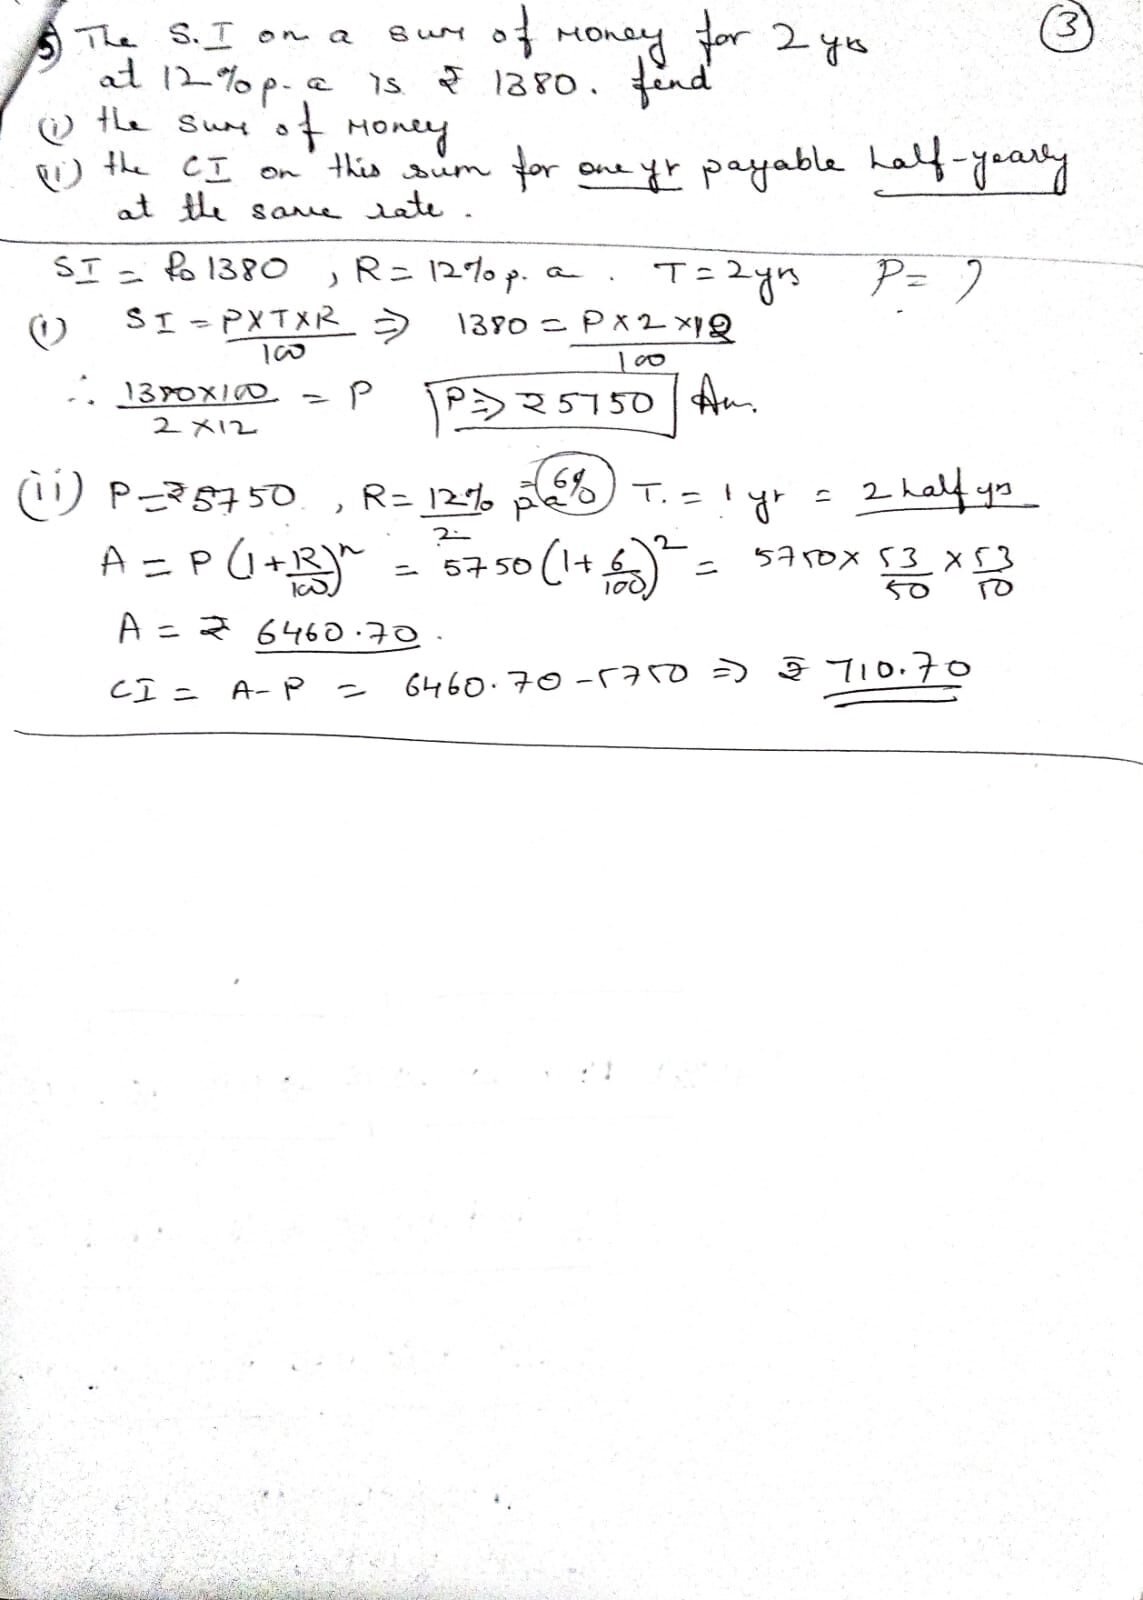 5) The S.I on a sum of Money for 2 yrs ③
at 12% p.a is ₹ 1380. find
(i) the sum of Money
(ii) the CI on this sum for one yr payable half-yearly
at the same rate.
SI = Rs 1380 , R = 12% p.a . T = 2 yrs P = ?
(i) SI = P×T×R/100 ⇒ 1380 = P×2×12/100
∴ 1380×100/2×12 = P P ⇒ ₹ 5750 Ans.
(ii) P = ₹ 5750 , R = 12%/2 p.a = 6% T. = 1 yr = 2 half yrs
A = P(1+R/100)ⁿ = 5750(1+6/100)² = 5750×53/50×53/50
A = ₹ 6460.70.
CI = A-P = 6460.70-5750 ⇒ ₹ 710.70